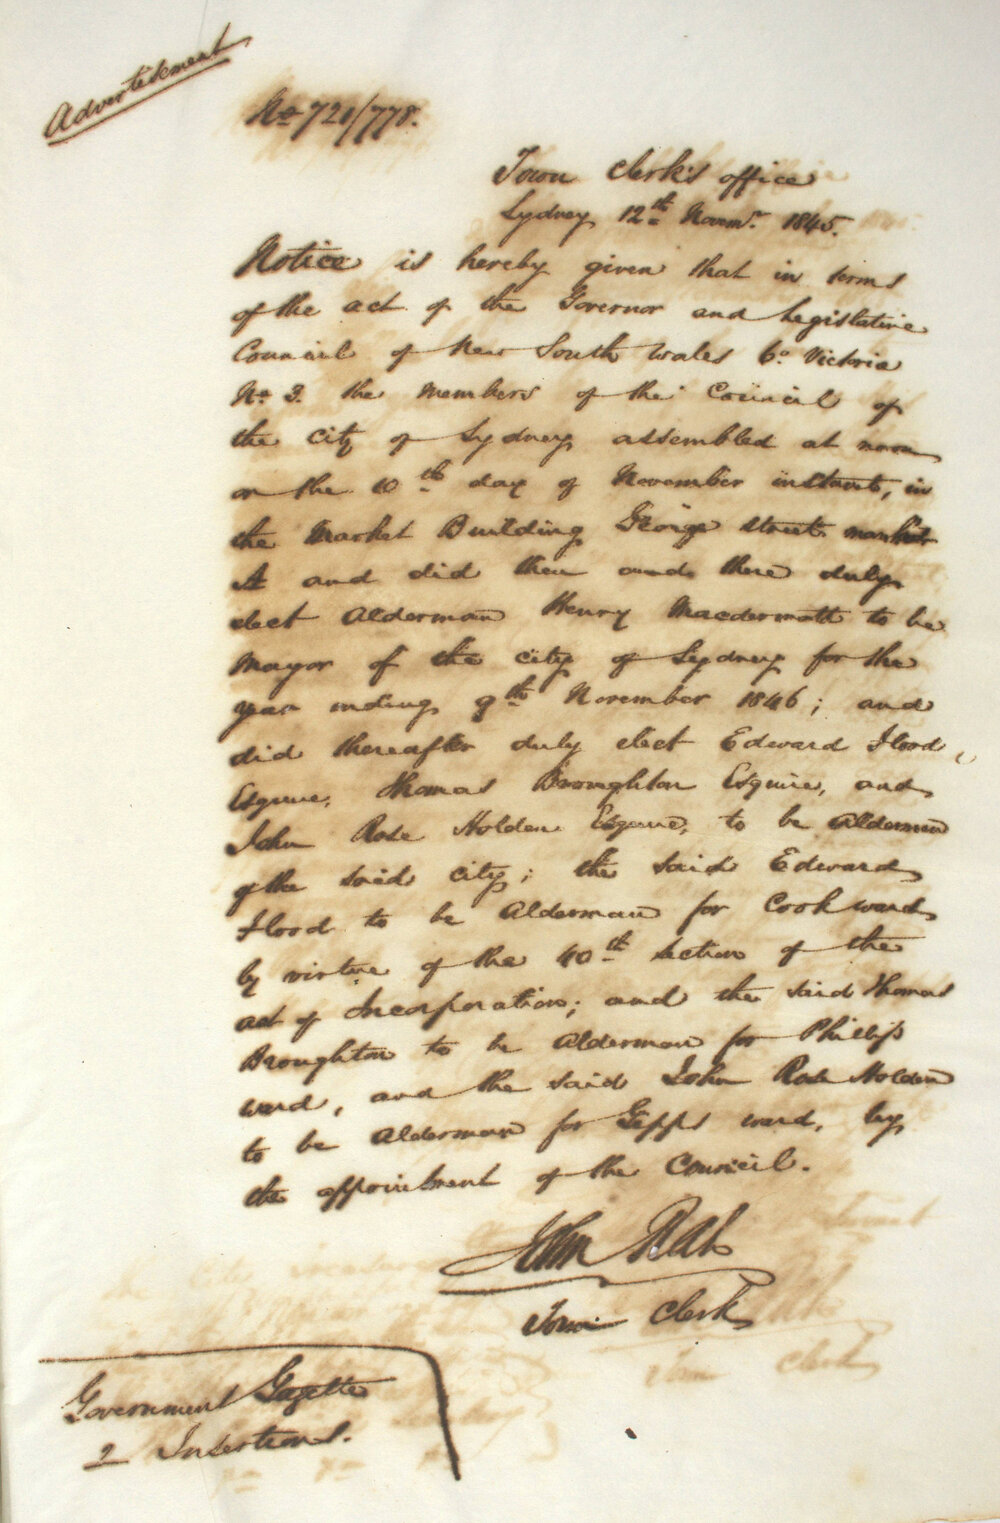 Advertisement
No 721/778.
Town Clerk's office
Sydney 12th Novemr. 1845.
Notice is hereby given that in terms
of the act of the Governor and Legislative
Council of New South Wales 6o Victoria
No 3. the members of the Council of
the city of Sydney assembled at noon
on the 10th day of November instant, in
the Market Building George street market
and did then and there duly
elect Alderman Henry Macdermott to be
Mayor of the city of Sydney for the
year ending 9th November 1846; and
did thereafter duly elect Edward Flood,
Esquire, Thomas Broughton Esquire, and
John Rose Holden Esquire, to be Aldermen
of the said city; the said Edward
Flood to be Alderman for Cook ward
by virtue of the 40th section of the
act of Incorporation; and the said Thomas
Broughton to be Alderman for Phillip
ward, and the said John Rose Holden
to be Alderman for Gipps ward, by
the appointment of the Council.
John Rae
Town Clerk
Government Gazette
2 Insertions.